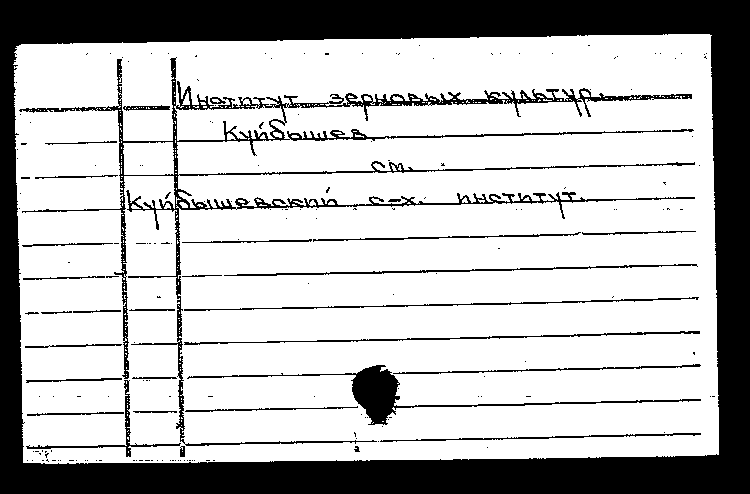 Институт зерновых культур.
Куйбышев.
см.
Куйбышевский с-х. институт.